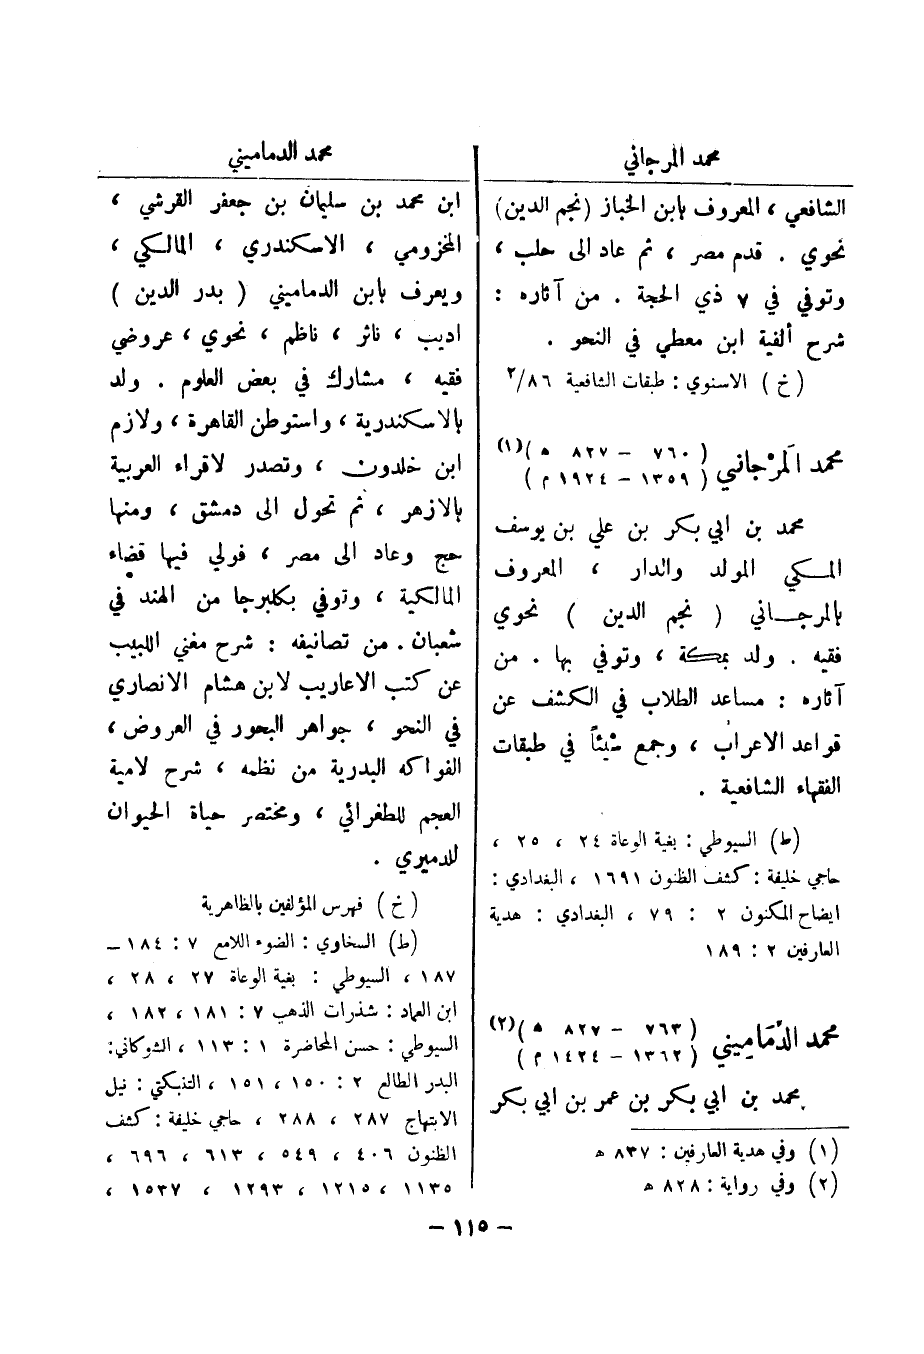 محمد المرجاني
الشافعي ، المعروف بابن الخباز (نجم الدين)
نحوي . قدم مصر ، ثم عاد الى حلب ،
وتوفي في ٧ ذي الحجة . من آثاره :
شرح ألفية ابن معطي في النحو .
(خ) الاسنوي : طبقات الشافعية ٨٦/٢
محمد المَرْجاني ( ٧٦٠ – ٨٢٧ ه )(١)
( ١٣٥٩ – ١٩٢٤ م )
محمد بن ابي بكر بن علي بن يوسف
المكي المولد والدار ، المعروف
بالمرجاني ( نجم الدين ) نحوي
فقيه . ولد بمكة ، وتوفي بها . من
آثاره : مساعد الطلاب في الكشف عن
قواعد الاعراب ، وجمع شيئاً في طبقات
الفقهاء الشافعية .
(ط) السيوطي : بغية الوعاة ٢٤ ، ٢٥ ،
حاجي خليفة : كشف الظنون ١٦٩١ ، البغدادي :
ايضاح المكنون ٢ : ٧٩ ، البغدادي : هدية
العارفين ٢ : ١٨٩
محمد الدَّمَاميني ( ٧٦٣ – ٨٢٧ ه )(٢)
( ١٣٦٢ – ١٤٢٤ م )
محمد بن ابي بكر بن عمر بن ابي بكر
(١) وفي هدية العارفين : ٨٣٧ ه
(٢) وفي رواية : ٨٢٨ ه
محمد الدماميني
ابن محمد بن سليمان بن جعفر القرشي ،
المخزومي ، الاسكندري ، المالكي ،
ويعرف بابن الدماميني ( بدر الدين )
اديب ، ناثر ، ناظم ، نحوي ، عروضي
فقيه ، مشارك في بعض العلوم . ولد
بالاسكندرية ، واستوطن القاهرة ، ولازم
ابن خلدون ، وتصدر لاقراء العربية
بالازهر ، ثم تحول الى دمشق ، ومنها
حج وعاد الى مصر ، فولي فيها قضاء
المالكية ، وتوفي بكلبرجا من الهند في
شعبان . من تصانيفه : شرح مغني اللبيب
عن كتب الاعاريب لابن هشام الانصاري
في النحو ، جواهر البحور في العروض ،
الفواكه البدرية من نظمه ، شرح لامية
العجم للطغرائي ، ومختصر حياة الحيوان
للدميري .
(خ) فهرس المؤلفين بالظاهرية
(ط) السخاوي : الضوء اللامع ٧ : ١٨٤ –
١٨٧ ، السيوطي : بغية الوعاة ٢٧ ، ٢٨ ،
ابن العماد : شذرات الذهب ٧ : ١٨١ ، ١٨٢ ،
السيوطي : حسن المحاضرة ١ : ١١٣ ، الشوكاني :
البدر الطالع ٢ : ١٥٠ ، ١٥١ ، التنبكتي : نيل
الابتهاج ٢٨٧ ، ٢٨٨ ، حاجي خليفة : كشف
الظنون ٤٠٦ ، ٥٤٩ ، ٦١٣ ، ٦٩٦ ،
١١٣٥ ، ١٢١٥ ، ١٢٩٣ ، ١٥٣٧ ،
– ١١٥ –